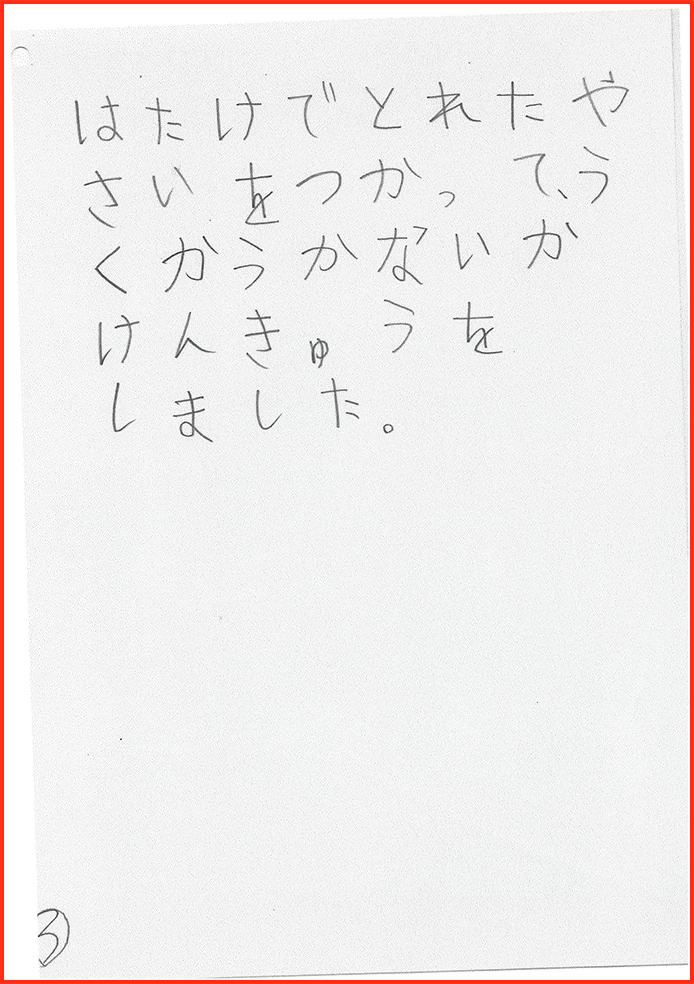 はたけでとれたや
さいをつかって、う
くかうかないか
けんきゅうを
しました。
③